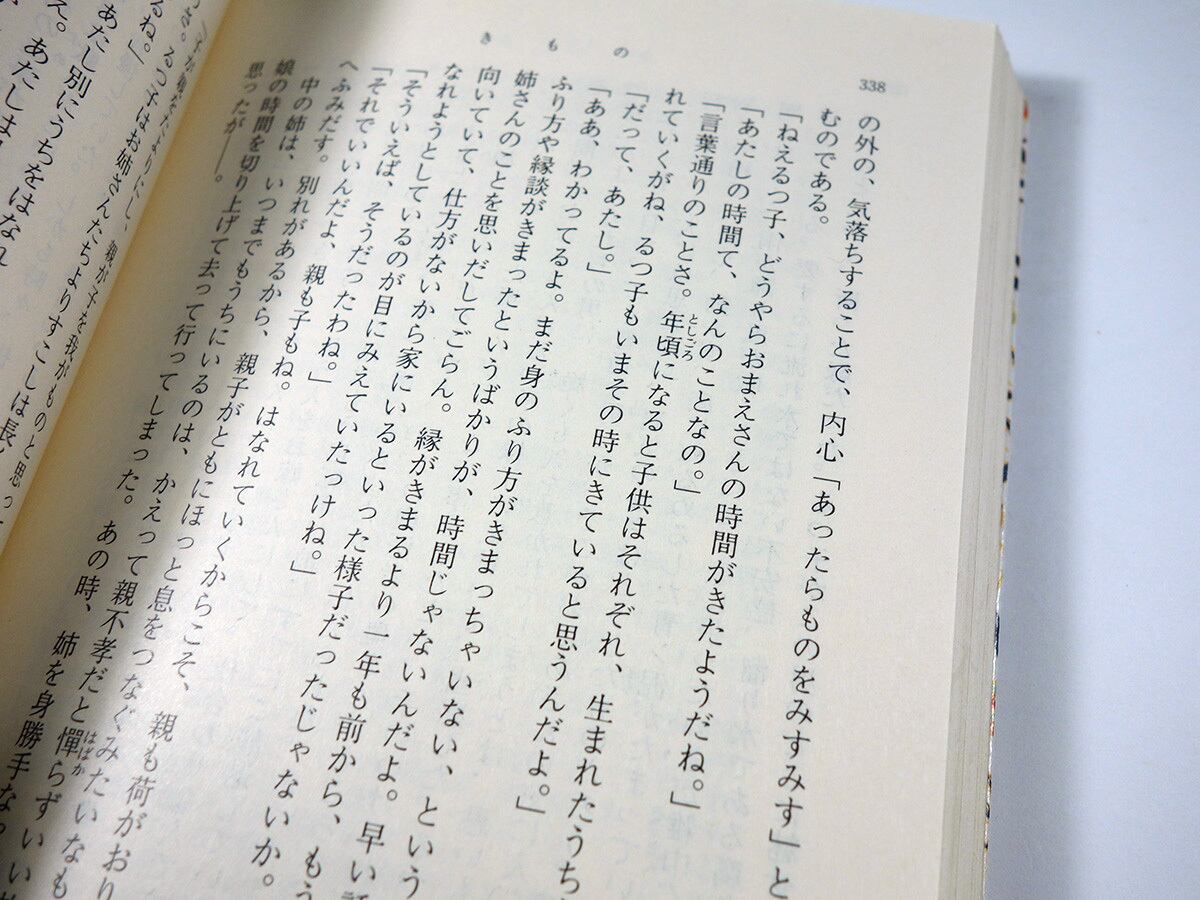 338
きもの
の外の、気落ちすることで、内心「あったらものをみすみす」と
むのである。
「ねえるつ子、どうやらおまえさんの時間がきたようだね。」
「あたしの時間て、なんのことなの。」
「言葉通りのことさ。年頃になると子供はそれぞれ、生まれたうち
としごろ
れていくがね、るつ子もいまその時にきていると思うんだよ。」
「だって、あたし。」
「ああ、わかってるよ。まだ身のふり方がきまっちゃいない、という
ふり方や縁談がきまったというばかりが、時間じゃないんだよ。早い話
姉さんのことを思いだしてごらん。縁がきまるより一年も前から、もう
向いていて、仕方がないから家にいるといった様子だったじゃないか。
なれようとしているのが目にみえていたっけね。」
「そういえば、そうだったわね。」
「それでいいんだよ、親も子もね。はなれていくからこそ、親も荷がおり
へふみだす。別れがあるから、親子がともにほっと息をつなぐみたいなも
中の姉は、いつまでもうちにいるのは、かえって親不孝だと憚らずいい
はばか
娘の時間を切り上げて去って行ってしまった。あの時、姉を身勝手な。
思ったが――。
子が親をたよりにし、親が子を我がものと思っ
さ。るつ子はお姉さんたちよりすこしは長
るね。」
あたし別にうちをはなれ
え。あたしま